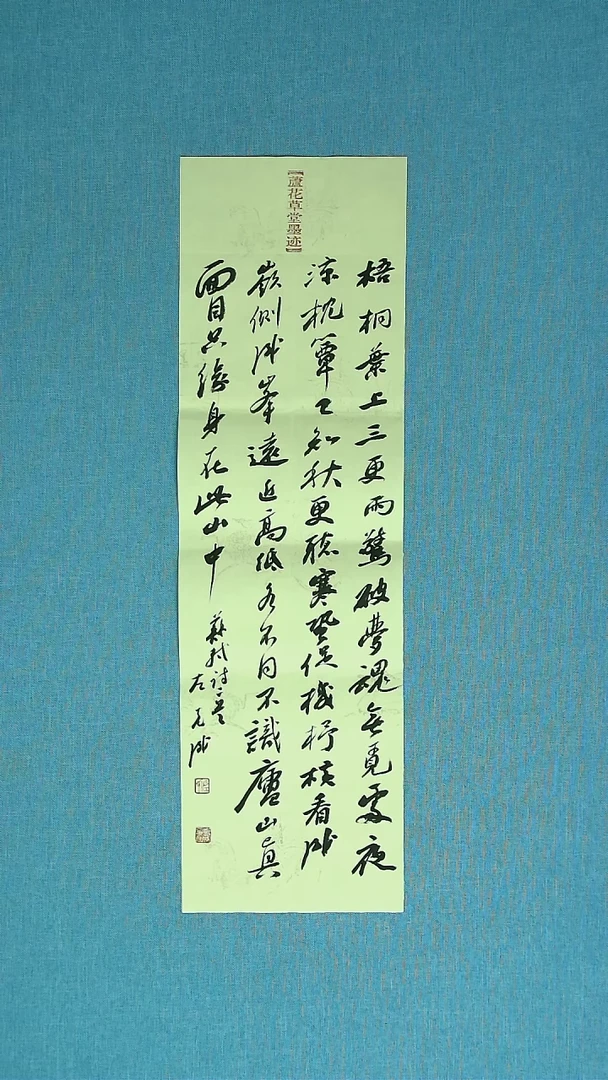 【蘆花草堂墨迹】
梧桐葉上三更雨驚破夢魂無覓處夜
涼枕簟已知秋更聽寒蛩促機杼橫看成
嶺側成峯遠近高低各不同不識廬山真
面目只緣身在此山中
蘇軾詩二首
左成